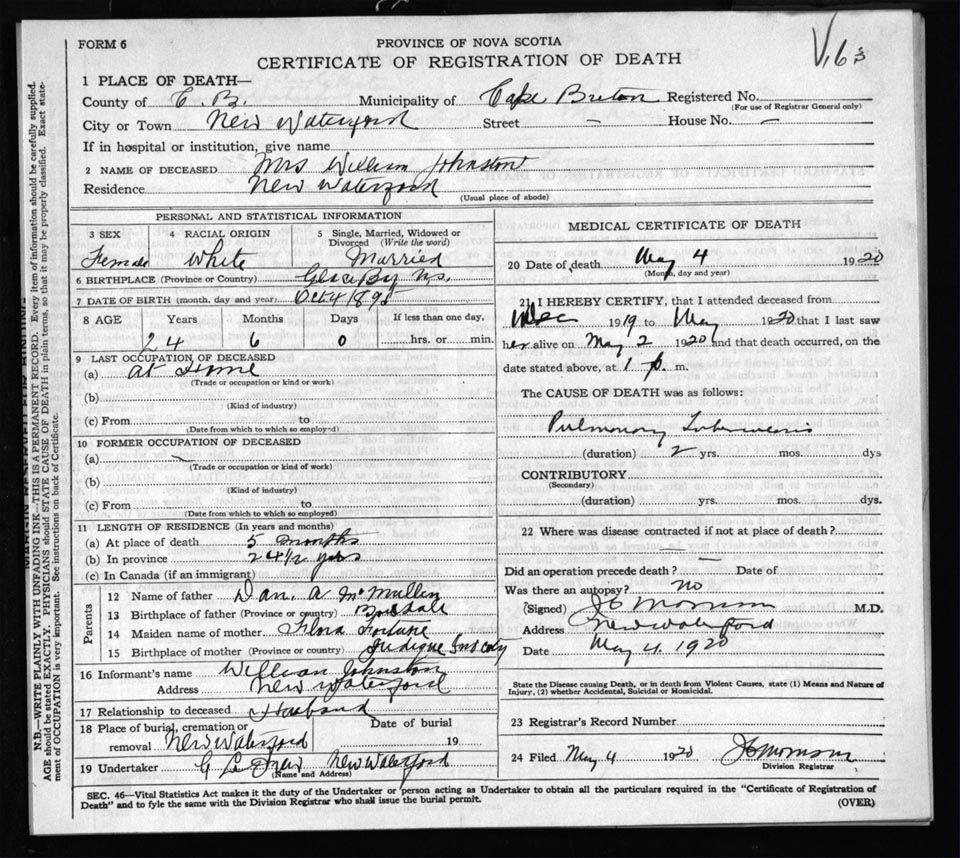 FORM 6
PROVINCE OF NOVA SCOTIA
CERTIFICATE OF REGISTRATION OF DEATH
1 PLACE OF DEATH—
County of C. B. Municipality of Cape Breton Registered No.
(For use of Registrar General only)
City or Town New Waterford Street — House No. —
If in hospital or institution, give name
2 NAME OF DECEASED Mrs William Johnston
Residence New Waterford
(Usual place of abode)
PERSONAL AND STATISTICAL INFORMATION
3 SEX 4 RACIAL ORIGIN 5 Single, Married, Widowed or Divorced (Write the word)
Female White Married
6 BIRTHPLACE (Province or Country) Glace Bay N.S.
7 DATE OF BIRTH (month, day and year) Oct 4 1895
8 AGE Years Months Days If less than one day,
24 6 0 hrs. or min.
9 LAST OCCUPATION OF DECEASED
(a) At Home
(Trade or occupation or kind or work)
(b)
(Kind of industry)
(c) From to
(Date from which to which so employed)
10 FORMER OCCUPATION OF DECEASED
(a) —
(Trade or occupation or kind of work)
(b)
(Kind of industry)
(c) From to
(Date from which to which so employed)
11 LENGTH OF RESIDENCE (In years and months)
(a) At place of death 5 months
(b) In province 24 1/2 yrs
(c) In Canada (if an immigrant)
Parents
12 Name of father Dan. A McMullin
13 Birthplace of father (Province or country)
14 Maiden name of mother Flora Fortune
15 Birthplace of mother (Province or country) Judique Inv Co
16 Informant's name William Johnston
Address New Waterford
17 Relationship to deceased Husband
18 Place of burial, cremation or removal New Waterford
Date of burial
19
19 Undertaker New Waterford
(Name and Address)
MEDICAL CERTIFICATE OF DEATH
20 Date of death May 4 1920
(Month, day and year)
21 I HEREBY CERTIFY, that I attended deceased from
Dec 1919 to May 1920 that I last saw
her alive on May 2 1920 and that death occurred, on the
date stated above, at 1 p. m.
The CAUSE OF DEATH was as follows:
Pulmonary Tuberculosis
(duration) 2 yrs. mos. dys
CONTRIBUTORY
(Secondary)
(duration) yrs. mos. dys.
22 Where was disease contracted if not at place of death?
— —
Did an operation precede death? — Date of
Was there an autopsy? no
(Signed) M.D.
Address New Waterford
Date May 4, 1920
State the Disease causing Death, or in death from Violent Causes, state (1) Means and Nature of
Injury, (2) whether Accidental, Suicidal or Homicidal.
23 Registrar's Record Number
24 Filed May 4 1920
Division Registrar
SEC. 46—Vital Statistics Act makes it the duty of the Undertaker or person acting as Undertaker to obtain all the particulars required in the "Certificate of Registration of
Death" and to fyle the same with the Division Registrar who shall issue the burial permit.
(OVER)
N.B.—WRITE PLAINLY WITH UNFADING INK—THIS IS A PERMANENT RECORD. Every item of information should be carefully supplied.
AGE should be stated EXACTLY. PHYSICIANS should STATE CAUSE OF DEATH in plain terms, so that it may be properly classified. Exact statement of OCCUPATION is very important. See instructions on back of Certificate.